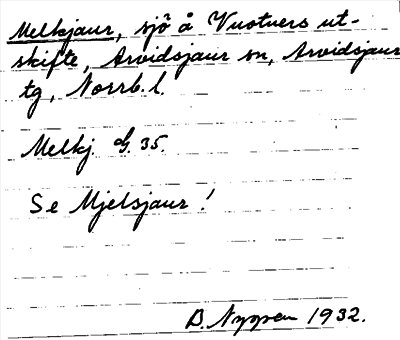 Melkjaur, sjö å Vuotners ut-
skifte, Arvidsjaur sn, Arvidsjaur
tg, Norrb. l.
Melkj. G. 35.
Se Mjelsjaur!
B. Nyman 1932.